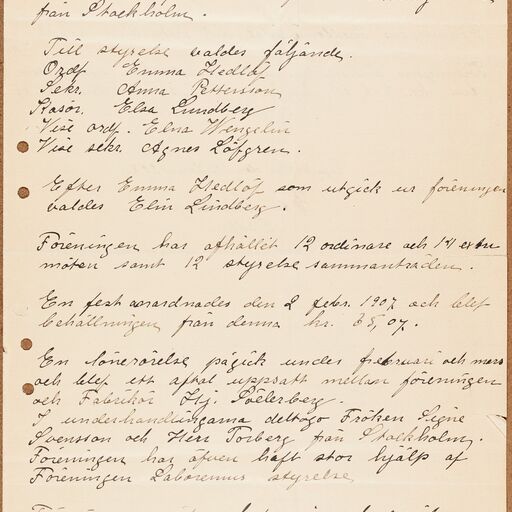 från Stockholm.
Till styrelse valdes följande.
Ordf. Emma Hedlöf
Sekr. Anna Pettersson
Kasör. Elsa Lundberg
Vise ordf. Elna Wengelin
Vise sekr. Agnes Löfgren.
Efter Emma Hedlöf som utgick ur föreningen
valdes Elin Lindberg.
Föreningen har afhållit 12 ordinare och 14 extra
möten samt 12 styrelse sammanträden.
En fest anordnades den 2 febr. 1907 och blef
behållningen från denna kr. 65,07.
En lönerörelse pågick under februari och mars
och blef ett aftal uppsatt mellan föreningen
och Fabrikör Hj. Söderberg.
I underhandlingarna deltogo Fröken Signe
Svensson och Herr Torberg från Stockholm.
Föreningen har äfven haft stor hjälp af
Föreningen Laboremus styrelse